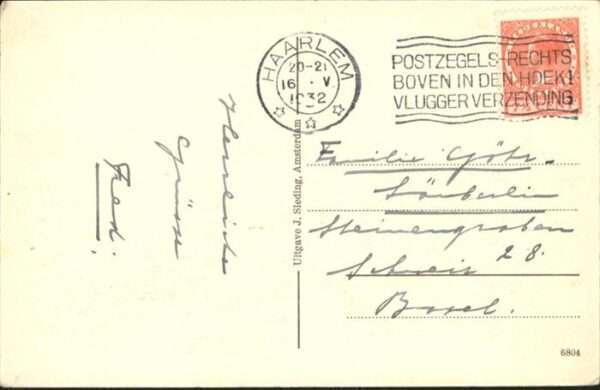 HAARLEM
20-21
16 . V
1932
POSTZEGELS RECHTS
BOVEN IN DEN HOEK!
VLUGGER VERZENDING
Herzliche
Grüsse
Fred.
Uitgave J. Sleding, Amsterdam
Familie
Steinengraben
28.
Schweiz
Basel.
6804